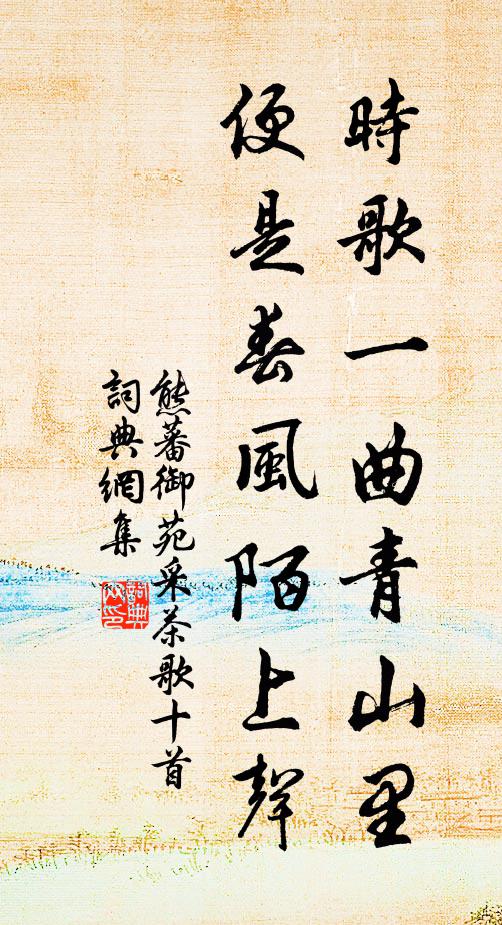 時歌一曲青山里
便是春風陌上聲
熊蕃御苑采茶歌十首
詞典網集